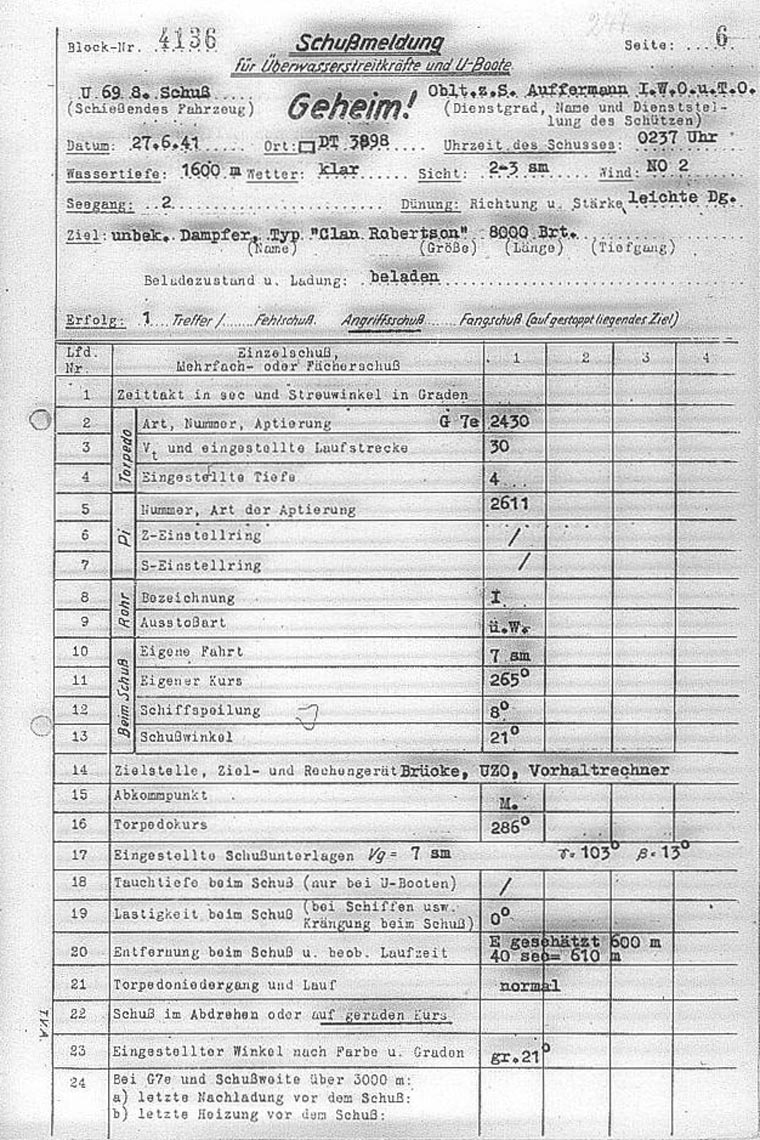 Block-Nr. 4136 Schußmeldung Seite: ....6
für Überwasserstreitkräfte und U-Boote
U 69 8. Schuß..... Geheim! Oblt.z.S. Auffermann I.W.O.u.T.O.
(Schießendes Fahrzeug) (Dienstgrad, Name und Dienststel-
lung des Schützen)
Datum: 27.6.41 Ort: DT 3898 Uhrzeit des Schusses: 0237 Uhr
Wassertiefe: 1600 m Wetter: klar Sicht: 2-3 sm Wind: NO 2
Seegang: 2 Dünung: Richtung u. Stärke leichte Dg.
Ziel: unbek. Dampfer, Typ "Clan Robertson" 8000 Brt.
(Name) (Größe) (Länge) (Tiefgang)
Beladezustand u. Ladung: beladen
Erfolg: 1 Treffer / Fehlschuß. Angriffsschuß Fangschuß (auf gestoppt liegendes Ziel)
Lfd. Nr. Einzelschuß, Mehrfach- oder Fächerschuß 1 2 3 4
1 Zeittakt in sec und Streuwinkel in Graden
Torpedo
2 Art, Nummer, Aptierung G 7e 2430
3 Vt und eingestellte Laufstrecke 30
4 Eingestellte Tiefe 4
Pi
5 Nummer, Art der Aptierung 2611
6 Z-Einstellring /
7 S-Einstellring /
Rohr
8 Bezeichnung I
9 Ausstoßart ü.W.
Beim Schuß
10 Eigene Fahrt 7 sm
11 Eigener Kurs 265°
12 Schiffspeilung 8°
13 Schußwinkel 21°
14 Zielstelle, Ziel- und Rechengerät Brücke, UZO, Vorhaltrechner
15 Abkommpunkt M.
16 Torpedokurs 286°
17 Eingestellte Schußunterlagen Vg = 7 sm γ=103° β=13°
18 Tauchtiefe beim Schuß (nur bei U-Booten) /
19 Lastigkeit beim Schuß (bei Schiffen usw. Krängung beim Schuß) 0°
20 Entfernung beim Schuß u. beob. Laufzeit E geschätzt 600 m
40 sec= 610 m
21 Torpedoniedergang und Lauf normal
22 Schuß im Abdrehen oder auf geraden Kurs
23 Eingestellter Winkel nach Farbe u. Graden gr.21°
24 Bei G7e und Schußweite über 3000 m:
a) letzte Nachladung vor dem Schuß:
b) letzte Heizung vor dem Schuß: